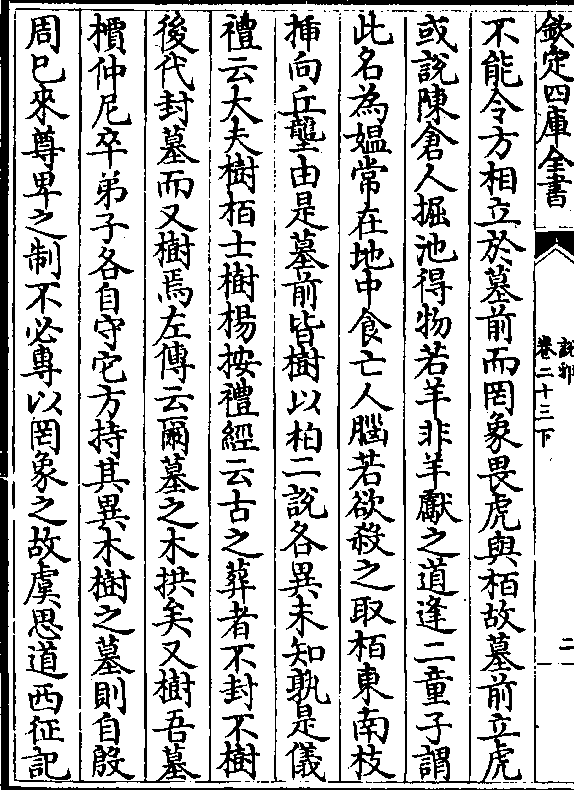 欽定四庫全書
說郛
卷二十三下
二
不能令方相立於墓前而罔象畏虎與栢故墓前立虎
或說陳倉人掘池得物若羊非羊獻之道逢二童子謂
此名為媼常在地中食亡人腦若欲殺之取栢東南枝
挿向丘壟由是墓前皆樹以柏二說各異未知孰是儀
禮云大夫樹栢士樹楊按禮經云古之葬者不封不樹
後代封墓而又樹焉左傳云爾墓之木拱矣又樹吾墓
檟仲尼卒弟子各自守它方持其異木樹之墓則自殷
周已來尊卑之制不必專以罔象之故虞思道西征記